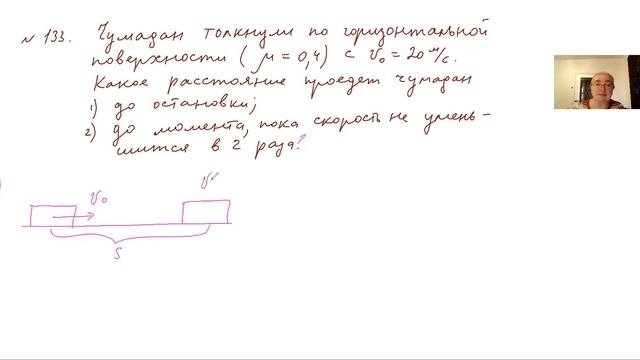 № 133. Чемодан толкнули по горизонтальной
поверхности (μ = 0,4) с υ₀ = 20 м/с.
Какое расстояние проедет чемодан
1) до остановки;
2) до момента, пока скорость не умень-
шится в 2 раза?
υ₀
υ
S